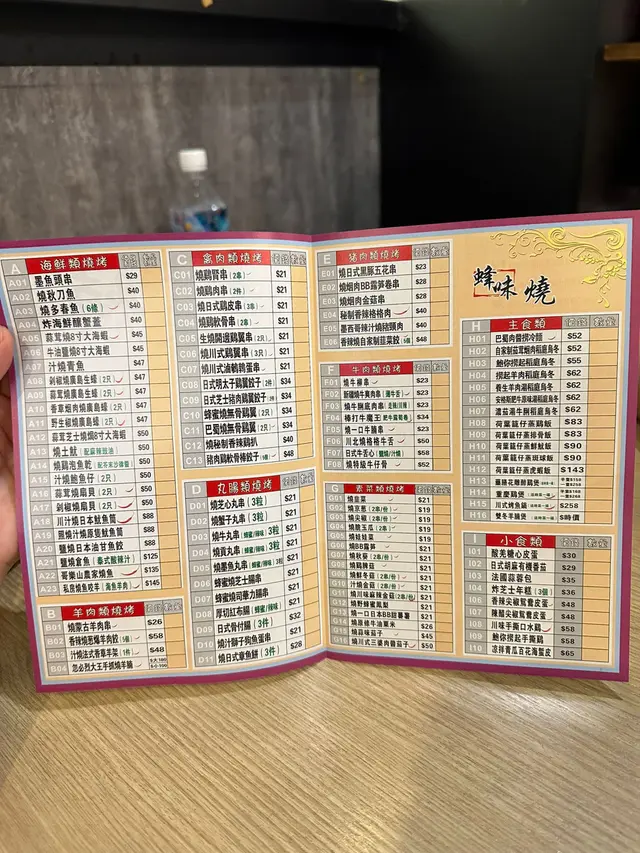 A 海鮮類燒烤
A01 墨魚頭串 $29
A02 燒秋刀魚 $40
A03 燒多春魚 (6條) $40
A04 炸海鮮釀蟹蓋 $40
A05 蒜茸燒8寸大海蝦 $45
A06 牛油鹽燒8寸大海蝦 $45
A07 汁燒青魚 $47
A08 剁椒燒廣島生蠔 (2只) $47
A09 蒜茸燒廣島生蠔 (2只) $47
A10 香草焗燒廣島生蠔 (2只) $47
A11 野生椒燒廣島生蠔 (2只) $47
A12 蒜茸芝士燒8寸大海蝦 $50
A13 燒土魷 $50
A14 燒鷄泡魚乾 $50
A15 汁燒鮑魚仔 (2只) $50
A16 蒜茸燒扇貝 (2只) $50
A17 剁椒燒扇貝 (2只) $50
A18 川汁燒日本魷魚筒 $88
A19 黑燒汁燒原隻魷魚筒 $88
A20 鹽燒日本油甘魚鮫 $88
A21 鹽燒倉魚 (泰式酸辣汁) $125
A22 哥樂山農家燒魚 $135
A23 私房燒魚咬羊 (海魚羊肉) $145
B 羊肉類燒烤
B01 燒蒙古羊肉串 $26
B02 香辣燒葱爆羊肉餃 (6個) $58
B03 汁燒法式香草羊架 (1件) $48
B04 忽必烈大王手抓燒羊腩
C 禽肉類燒烤
C01 燒鷄腎串 (2串) $21
C02 燒鷄肉串 (2件) $21
C03 燒日式鷄皮串 (3串) $21
C04 燒鷄軟骨串 (2串) $21
C05 生燒開邊鷄翼串 (2只) $21
C06 燒川式鷄翼串 (3只) $21
C07 燒川式滷鵪鶉蛋串 $21
C08 日式明太子鷄翼餃子 (2件) $34
C09 日式芝士豬肉鷄翼餃子 (2件) $34
C10 蜂蜜燒無骨鷄翼 (2只) $34
C11 巴蜀燒無骨鷄翼 (2只) $34
C12 燒秘制香辣鷄扒 $40
C13 豬肉鷄軟骨棒餃子 (1條) $48
D 丸腸類燒烤
D01 燒芝心丸串 (3粒) $21
D02 燒蟹子丸串 (3粒) $21
D03 燒牛丸串 (蜂蜜/辣味) 3粒 $21
D04 燒貢丸串 (蜂蜜/辣味) 3粒 $21
D05 燒墨魚丸串 (蜂蜜/辣味) 3粒 $21
D06 蜂蜜燒芝士腸串 $21
D07 蜂蜜燒司華力腸串 $21
D08 厚切紅布腸 (蜂蜜/辣味) $21
D09 日式骨付腸 (3件) $21
D10 燒汁獅子狗魚蛋串 $21
D11 燒日式章魚餅 (3件) $28
E 豬肉類燒烤
E01 燒日式黑豚五花串 $23
E02 燒烟肉BB露笋卷串 $28
E03 燒烟肉金菇串 $28
E04 秘制香辣格格肉 $40
E05 墨西哥辣汁燒豬頸肉 $40
E06 香辣燒自家制韮菜餃 (6條) $48
F 牛肉類燒烤
F01 燒牛柳串 $23
F02 新疆燒牛爽肉串 (薄牛舌) $23
F03 燒牛脷底肉串 $23
F04 棒打牛魔王 $34
F05 燒一口牛腩串 $23
F06 川北燒格格牛舌 $50
F07 日式牛舌心 (鹽燒/汁燒) $58
F08 燒特級牛仔骨 $52
G 素菜類燒烤
G01 燒韭菜 $19
G02 燒京葱 (2串/份) $19
G03 燒尖椒 (2串/份) $19
G04 燒脆玉瓜 (2串) $19
G05 燒娃娃菜 $19
G06 燒BB露笋 $19
G07 燒秋葵 (2串/份) $21
G08 燒鷄髀菇 $21
G09 燒鮮冬菇 (2串/份) $21
G10 汁燒金菇 (2串/份) $21
G11 燒川味麻辣金菇 (2串/份) $21
G12 燒野蜂蜜鳳梨 $21
G13 燒一口日本BB甜薯薯 $21
G14 燒原條牛油粟米 $26
G15 燒蒜味茄子 $45
G16 燒川式三婆肉醬茄子 $50
蜂味燒
H 主食類
H01 巴蜀肉醬撈冷麵 $52
H02 自家制茄茸焗肉稻庭烏冬 $52
H03 鮑你撈起稻庭烏冬 $55
H04 撈起羊肉稻庭烏冬 $62
H05 養生羊肉湯稻庭烏冬 $62
H06 安格斯肥牛原味湯稻庭烏冬 $62
H07 濃茄湯牛脷稻庭烏冬 $62
H08 荷葉籠仔蒸鷄飯 $83
H09 荷葉籠仔蒸排骨飯 $83
H10 荷葉籠仔蒸鮮魷飯 $90
H11 荷葉籠仔蒸斑球飯 $90
H12 荷葉籠仔蒸虎蝦飯 $143
H13 藥膳花雕醉鷄煲
H14 重慶鷄煲
H15 川式烤魚鍋 $258
H16 雙冬羊腩煲 $時價
I 小食類
I01 酸羌糖心皮蛋 $30
I02 日式胡麻有機番茄 $29
I03 法國蒜蓉包 $35
I04 炸芝士年糕 (3個) $36
I06 香辣尖椒鴛鴦皮蛋 $48
I07 辣醋尖椒鴛鴦皮蛋 $48
I08 川味手撕口水鷄 $58
I09 鮑你撈起手撕鷄 $58
I10 凉拌青瓜百花海蜇皮 $65